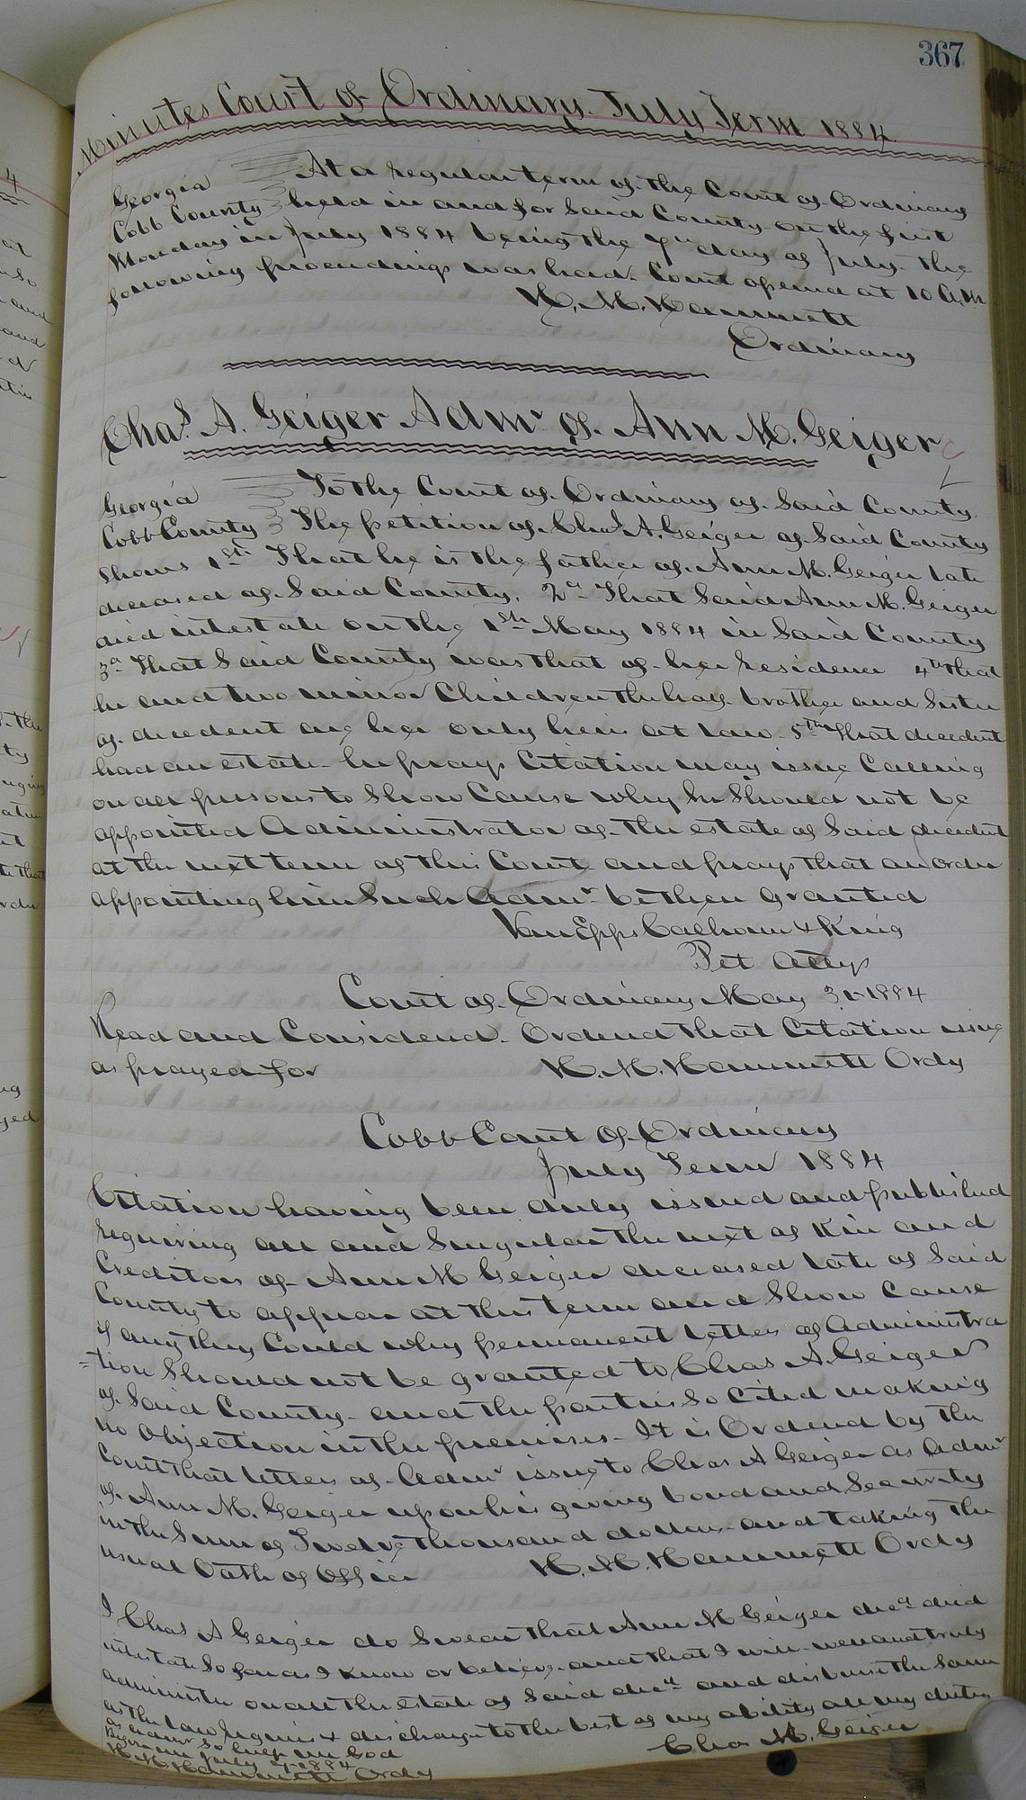 367
Minutes Court of Ordinary. July Term 1884.
Georgia At a regular term of the Court of Ordinary
Cobb County held in and for Said County on the first
Monday in July 1884 being the 7th day of July. The
following proceedings was had. Court opend at 10 A.M.
H. M. Hammett
Ordinary
Chas. A. Geiger Admr of. Ann M. Geiger
Georgia To the Court of Ordinary of Said County.
Cobb County The petition of Chas A. Geiger of Said County
Shows 1st That he is the father of Ann M. Geiger late
deceased of Said County. 2d That Said Ann M. Geiger
died intestate on the 1st May 1884 in Said County
3d That Said County was that of her residence 4th That
he and two minor Children the half brother and Sister
of decedent are her only heirs at law. 5th That decedent
had an estate. he prays Citation may issue Calling
on all persons to Show Cause why he Should not be
appointed Administrator of the estate of Said decedent
at the next term of this Court and prays that an order
appointing him Such Admr be then granted
Van Epps Calhoun & King
Pet Attys
Court of Ordinary May 31 1884
Read and Considerd. Orderd that Citation issue
as prayed for H. M. Hammett Ordy
Cobb Court of Ordinary
July Term 1884
Citation having been duly issued and published
requiring all and Singular the next of Kin and
Creditors of Ann M Geiger deceased late of Said
County to appear at this term and Show Cause
if any they Could why permanent letters of Administra
=tion Should not be granted to Chas A. Geiger
of Said County. and the parties So Cited making
no objection in the premises. It is Orderd by the
Court that letters of Admr issue to Chas A Geiger as Admr
of Ann M. Geiger upon his giving bond and Security
in the Sum of Twelve thousand dollars and taking the
usual Oath of Office H. M. Hammett Ordy
I Chas A Geiger do Swear that Ann M Geiger decd died
intestate So far as I know or believe. and that I will well and truly
administer on all the estate of Said decd and disburse the Same
as the law requires & discharge to the best of my ability all my duties
as admr So help me God Chas M. Geiger
Before me July 1884
H. M. Hammett Ordy